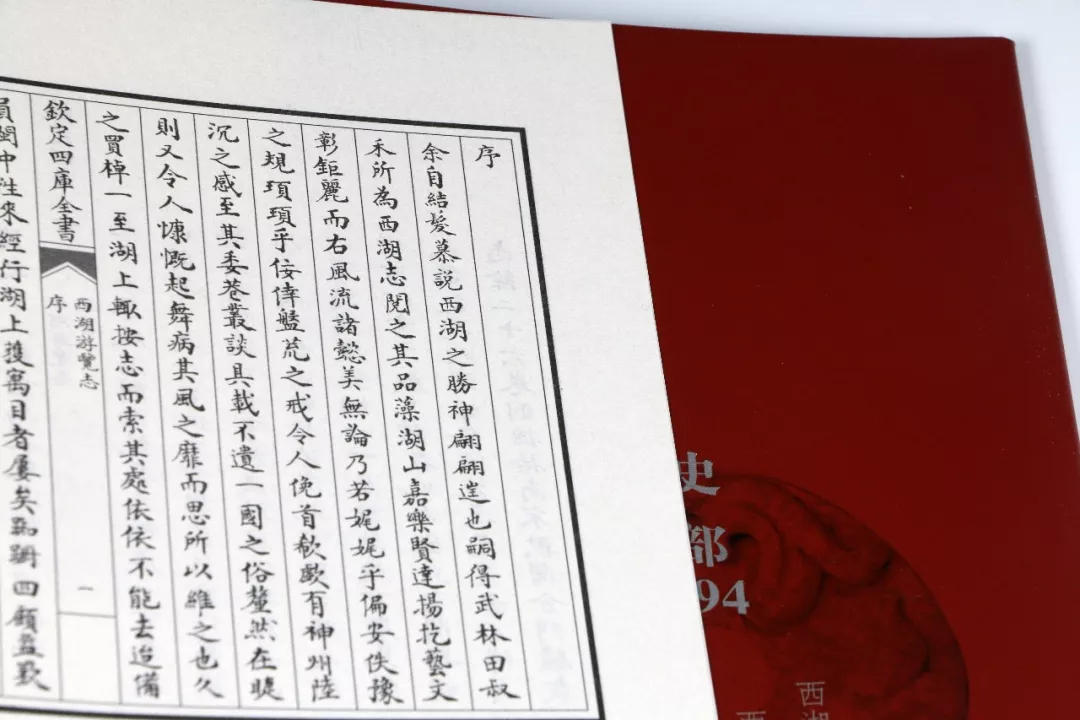 序
余自結髪慕説西湖之勝神翩翩也嗣得武林田叔
禾所為西湖志閱之其品藻湖山嘉樂賢達揚扢藝文
彰鉅麗而右風流諸懿美無論乃若娓娓乎偏安佚豫
之規瑣瑣乎佞倖盤荒之戒令人俛首欷歔有神州陸
沉之感至其委巷叢談具載不遺一國之俗釐然在睫
則又令人慷慨起舞病其風之靡而思所以維之也久
之買棹一至湖上輙按志而索其處依依不能去迨備
欽定四庫全書
西湖游覽志
序
一
員閩中往來經行湖上獲寓目者屢矣踟蹰四顧盖歎
史部
94
西湖
西